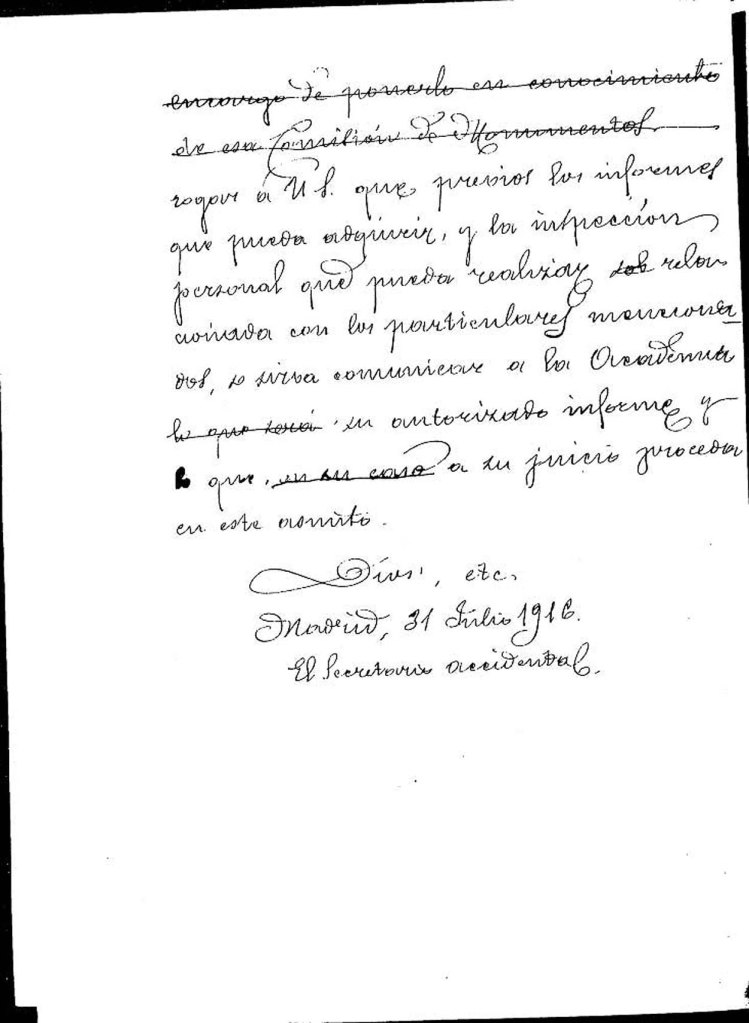 encargo de ponerlo en conocimiento
de esa Comisión de Monumentos
rogar á U S. que previos los informes
que pueda adquirir, y la inspección
personal que pueda realizar sob relac
cionada con los particulares menciona
dos, se sirva comunicar a la Academia
lo que será su autorizado informe y
lo que, en su caso a su juicio proceda
en este asunto.
Dios, etc.
Madrid, 31 Julio 1916.
El Secretario accidental.